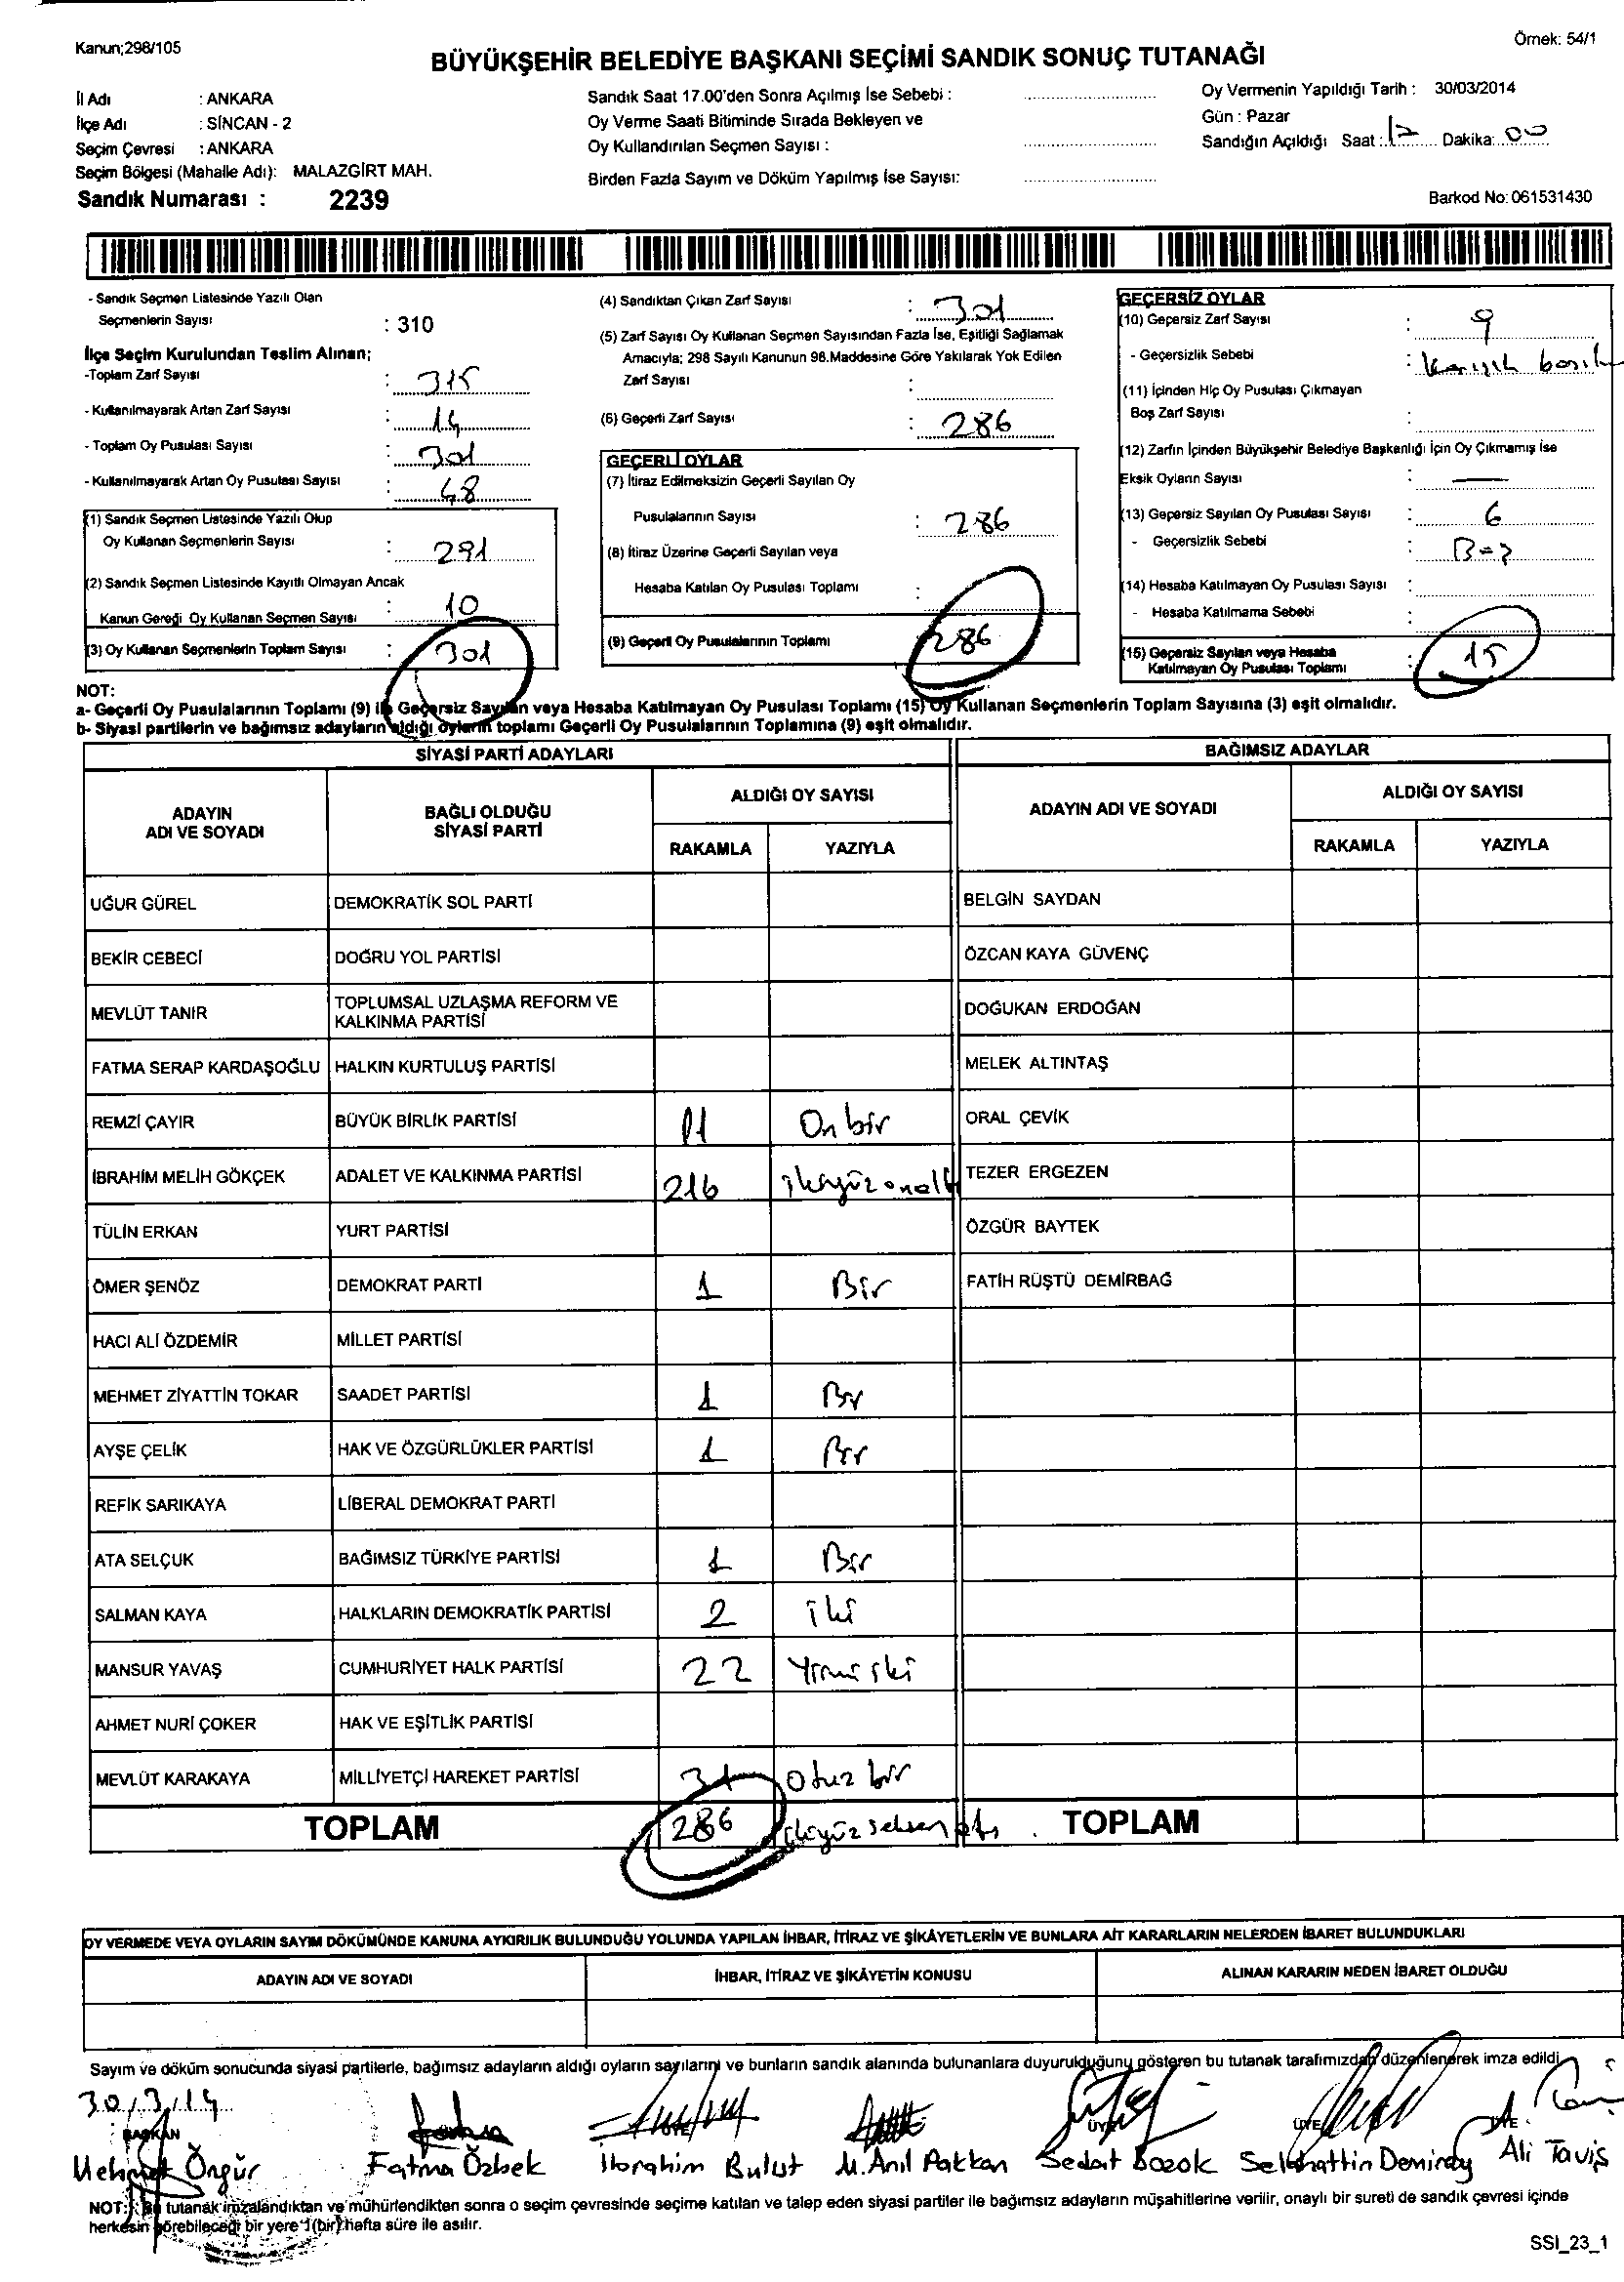 Kanun;298/105
Örnek: 54/1
BÜYÜKŞEHİR BELEDİYE BAŞKANI SEÇİMİ SANDIK SONUÇ TUTANAĞI
İl Adı : ANKARA
İlçe Adı : SİNCAN - 2
Seçim Çevresi : ANKARA
Seçim Bölgesi (Mahalle Adı): MALAZGİRT MAH.
Sandık Numarası : 2239
Sandık Saat 17.00'den Sonra Açılmış İse Sebebi :
Oy Verme Saati Bitiminde Sırada Bekleyen ve
Oy Kullandırılan Seçmen Sayısı :
Birden Fazla Sayım ve Döküm Yapılmış İse Sayısı:
Oy Vermenin Yapıldığı Tarih : 30/03/2014
Gün : Pazar
Sandığın Açıldığı Saat : 17 Dakika: 00
Barkod No: 061531430
- Sandık Seçmen Listesinde Yazılı Olan
Seçmenlerin Sayısı : 310
İlçe Seçim Kurulundan Teslim Alınan;
-Toplam Zarf Sayısı : 315
- Kullanılmayarak Artan Zarf Sayısı : 14
- Toplam Oy Pusulası Sayısı : 301
- Kullanılmayarak Artan Oy Pusulası Sayısı : 48
(1) Sandık Seçmen Listesinde Yazılı Olup
Oy Kullanan Seçmenlerin Sayısı : 291
(2) Sandık Seçmen Listesinde Kayıtlı Olmayan Ancak
Kanun Gereği Oy Kullanan Seçmen Sayısı : 10
(3) Oy Kullanan Seçmenlerin Toplam Sayısı : 301
(4) Sandıktan Çıkan Zarf Sayısı : 301
(5) Zarf Sayısı Oy Kullanan Seçmen Sayısından Fazla İse, Eşitliği Sağlamak
Amacıyla; 298 Sayılı Kanunun 98.Maddesine Göre Yakılarak Yok Edilen
Zarf Sayısı :
(6) Geçerli Zarf Sayısı : 286
GEÇERLİ OYLAR
(7) İtiraz Edilmeksizin Geçerli Sayılan Oy
Pusulalarının Sayısı : 286
(8) İtiraz Üzerine Geçerli Sayılan veya
Hesaba Katılan Oy Pusulası Toplamı :
(9) Geçerli Oy Pusulalarının Toplamı : 286
GEÇERSİZ OYLAR
(10) Geçersiz Zarf Sayısı : 9
- Geçersizlik Sebebi : Karışık
(11) İçinden Hiç Oy Pusulası Çıkmayan
Boş Zarf Sayısı :
(12) Zarfın İçinden Büyükşehir Belediye Başkanlığı İçin Oy Çıkmamış İse
Eksik Oyların Sayısı : —
(13) Geçersiz Sayılan Oy Pusulası Sayısı : 6
- Geçersizlik Sebebi :
(14) Hesaba Katılmayan Oy Pusulası Sayısı :
- Hesaba Katılmama Sebebi :
(15) Geçersiz Sayılan veya Hesaba
Katılmayan Oy Pusulası Toplamı : 15
NOT:
a- Geçerli Oy Pusulalarının Toplamı (9) ile Geçersiz Sayılan veya Hesaba Katılmayan Oy Pusulası Toplamı (15) Oy Kullanan Seçmenlerin Toplam Sayısına (3) eşit olmalıdır.
b- Siyasi partilerin ve bağımsız adayların aldığı oyların toplamı Geçerli Oy Pusulalarının Toplamına (9) eşit olmalıdır.
SİYASİ PARTİ ADAYLARI
BAĞIMSIZ ADAYLAR
ADAYIN
ADI VE SOYADI
BAĞLI OLDUĞU
SİYASİ PARTİ
ALDIĞI OY SAYISI
RAKAMLA YAZIYLA
ADAYIN ADI VE SOYADI
ALDIĞI OY SAYISI
RAKAMLA YAZIYLA
UĞUR GÜREL DEMOKRATİK SOL PARTİ BELGİN SAYDAN
BEKİR CEBECİ DOĞRU YOL PARTİSİ ÖZCAN KAYA GÜVENÇ
MEVLÜT TANIR TOPLUMSAL UZLAŞMA REFORM VE
KALKINMA PARTİSİ DOĞUKAN ERDOĞAN
FATMA SERAP KARDAŞOĞLU HALKIN KURTULUŞ PARTİSİ MELEK ALTINTAŞ
REMZİ ÇAYIR BÜYÜK BİRLİK PARTİSİ 11 On bir ORAL ÇEVİK
İBRAHİM MELİH GÖKÇEK ADALET VE KALKINMA PARTİSİ 216 ikiyüzonaltı TEZER ERGEZEN
TÜLİN ERKAN YURT PARTİSİ ÖZGÜR BAYTEK
ÖMER ŞENÖZ DEMOKRAT PARTİ 1 Bir FATİH RÜŞTÜ DEMİRBAĞ
HACI ALİ ÖZDEMİR MİLLET PARTİSİ
MEHMET ZİYATTİN TOKAR SAADET PARTİSİ 1 Bir
AYŞE ÇELİK HAK VE ÖZGÜRLÜKLER PARTİSİ 1 Bir
REFİK SARIKAYA LİBERAL DEMOKRAT PARTİ
ATA SELÇUK BAĞIMSIZ TÜRKİYE PARTİSİ 1 Bir
SALMAN KAYA HALKLARIN DEMOKRATİK PARTİSİ 2 iki
MANSUR YAVAŞ CUMHURİYET HALK PARTİSİ 22 Yirmi iki
AHMET NURİ ÇOKER HAK VE EŞİTLİK PARTİSİ
MEVLÜT KARAKAYA MİLLİYETÇİ HAREKET PARTİSİ 31 Otuz bir
TOPLAM 286 ikiyüz seksen altı TOPLAM
OY VERMEDE VEYA OYLARIN SAYIM DÖKÜMÜNDE KANUNA AYKIRILIK BULUNDUĞU YOLUNDA YAPILAN İHBAR, İTİRAZ VE ŞİKÂYETLERİN VE BUNLARA AİT KARARLARIN NELERDEN İBARET BULUNDUKLARI
ADAYIN ADI VE SOYADI İHBAR, İTİRAZ VE ŞİKÂYETİN KONUSU ALINAN KARARIN NEDEN İBARET OLDUĞU
Sayım ve döküm sonucunda siyasi partilerle, bağımsız adayların aldığı oyların sayılarını ve bunların sandık alanında bulunanlara duyurulduğunu gösteren bu tutanak tarafımızdan düzenlenerek imza edildi
30/3/14
BAŞKAN ÜYE ÜYE ÜYE ÜYE
Mehmet Öngür Fatma Özbek İbrahim Bulut M.Anıl Pakkan Sedat Bozok Selahattin Demiray Ali Taviş
NOT: Bu tutanak imzalandıktan ve mühürlendikten sonra o seçim çevresinde seçime katılan ve talep eden siyasi partiler ile bağımsız adayların müşahitlerine verilir, onaylı bir sureti de sandık çevresi içinde
herkesin görebileceği bir yere 1(bir) hafta süre ile asılır.
SSI_23_1